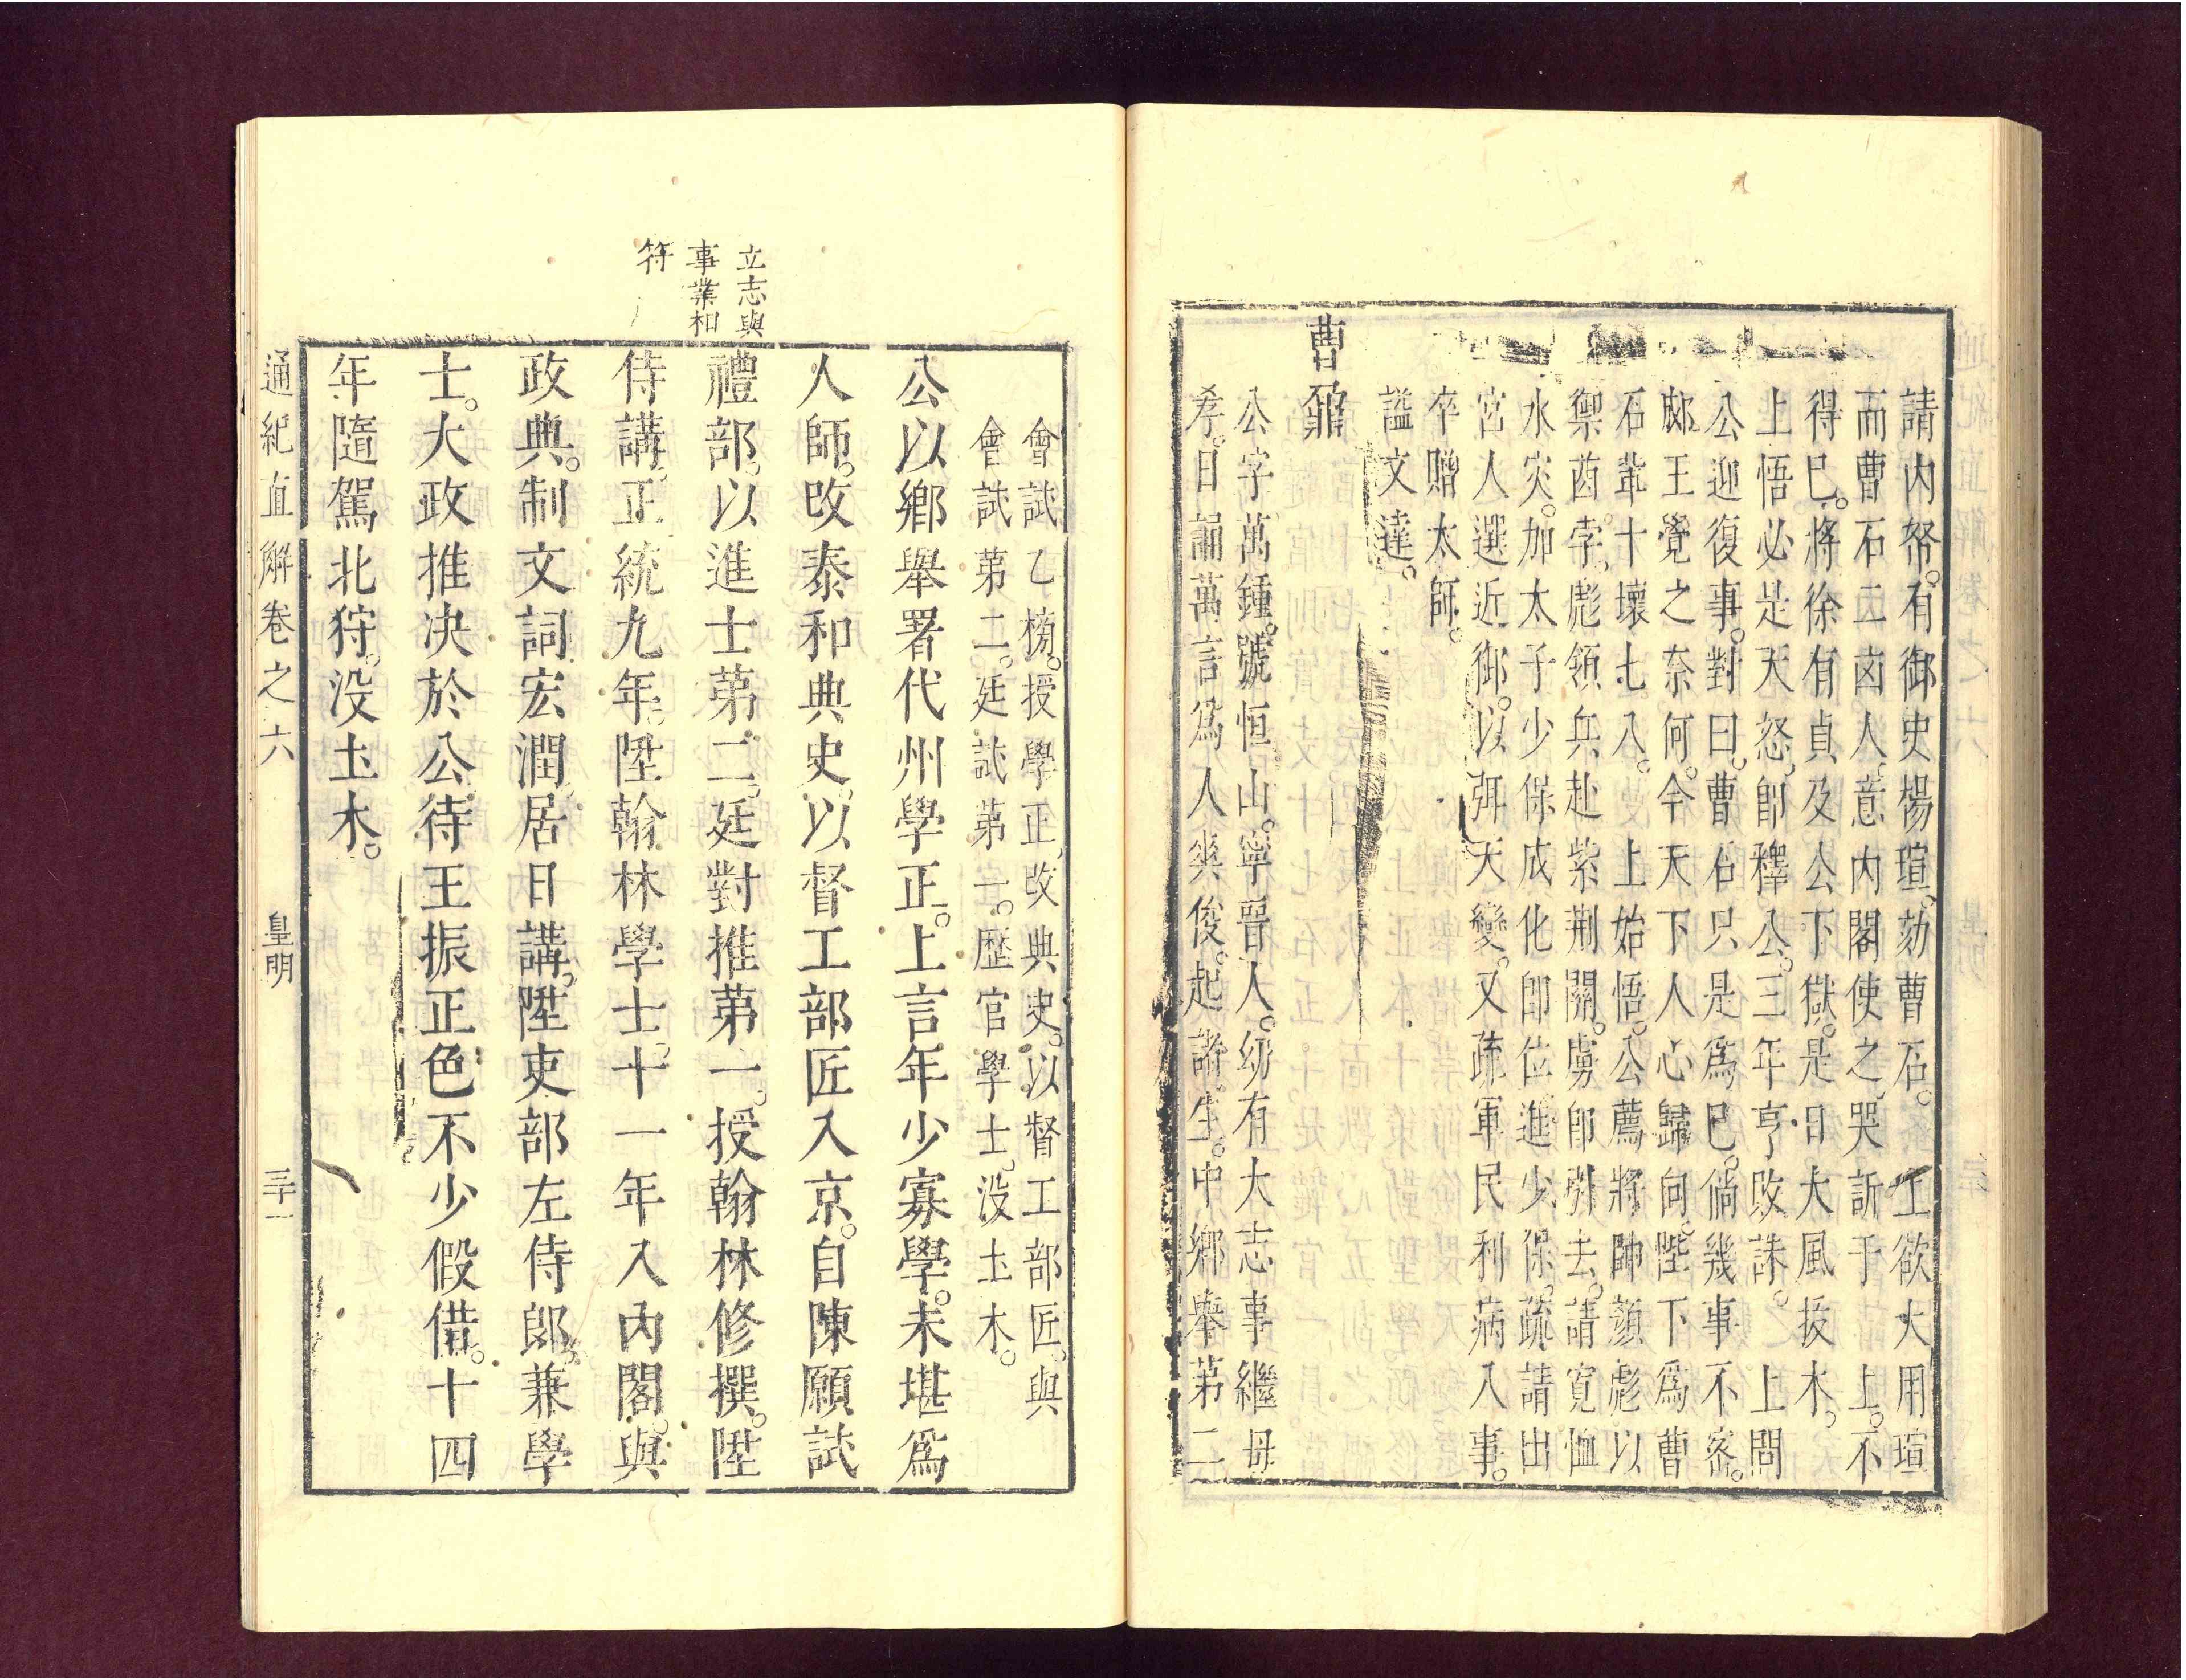 請內帑。有御史楊瑄。劾曹石。　上欲大用瑄
而曹石二凶人。意內閣使之。哭訴于　上。不
得已。將徐有貞及公下獄。是日大風拔木。
上悟必是天怒。卽釋公。三年亨敗誅。　上問
公迎復事。對曰。曹石只是爲已。倘幾事不密。
郕王覺之奈何。今天下人心歸向陛下。爲曹
石輩十壞七八。　上始悟。公薦將帥顏彪以
禦酋孛。彪領兵赴紫荆關。虜卽引去。請寬恤
水灾。加太子少保。成化卽位進少保。疏請出
宮人選近御。以弭天變。又疏軍民利病入事。
卒贈太師。
謚文達。
曹鼐
公字萬鍾。號恒山。寧晉人。幼有大志事繼母
孝。日誦萬言爲人爽俊。起諸生。中鄉舉第二
會試乙榜。授學正。改典史。以督工部匠。與
會試第二。廷試第一。歷官學士。没土木。
公以鄉舉署代州學正。上言年少寡學。未堪爲
人師。改泰和典史。以督工部匠入京。自陳願試
立志與
事業相
符
禮部。以進士第二。廷對推第一。授翰林修撰。陞
侍講。正統九年。陞翰林學士。十一年入內閣。與
政典。制文詞宏潤。居日講。陞吏部左侍郎。兼學
士。大政推决於公。待王振正色不少假借。十四
年隨駕北狩。没土木。
通紀直解卷之六　皇明　三十一